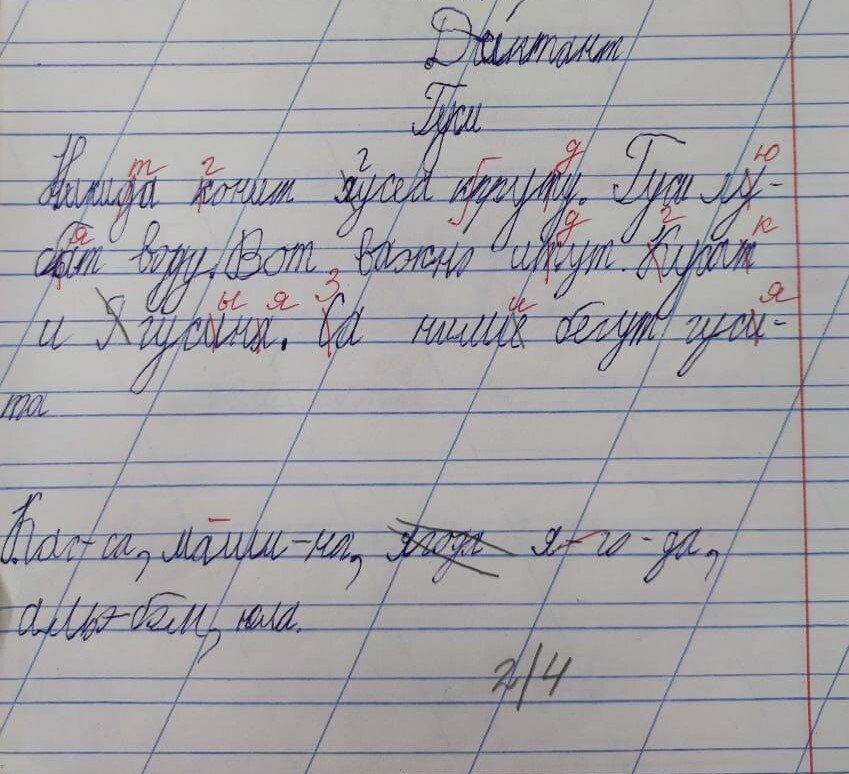 Диктант
Гуси
Никида конит гусей к пруту. Гуси лу-
бит воду. Вот важно итут. Кусат
и гусина. Са ними бегут гуси-
та
Кас-са, маши-на, ягода я-го-да,
аль-бом, юла.
2/4